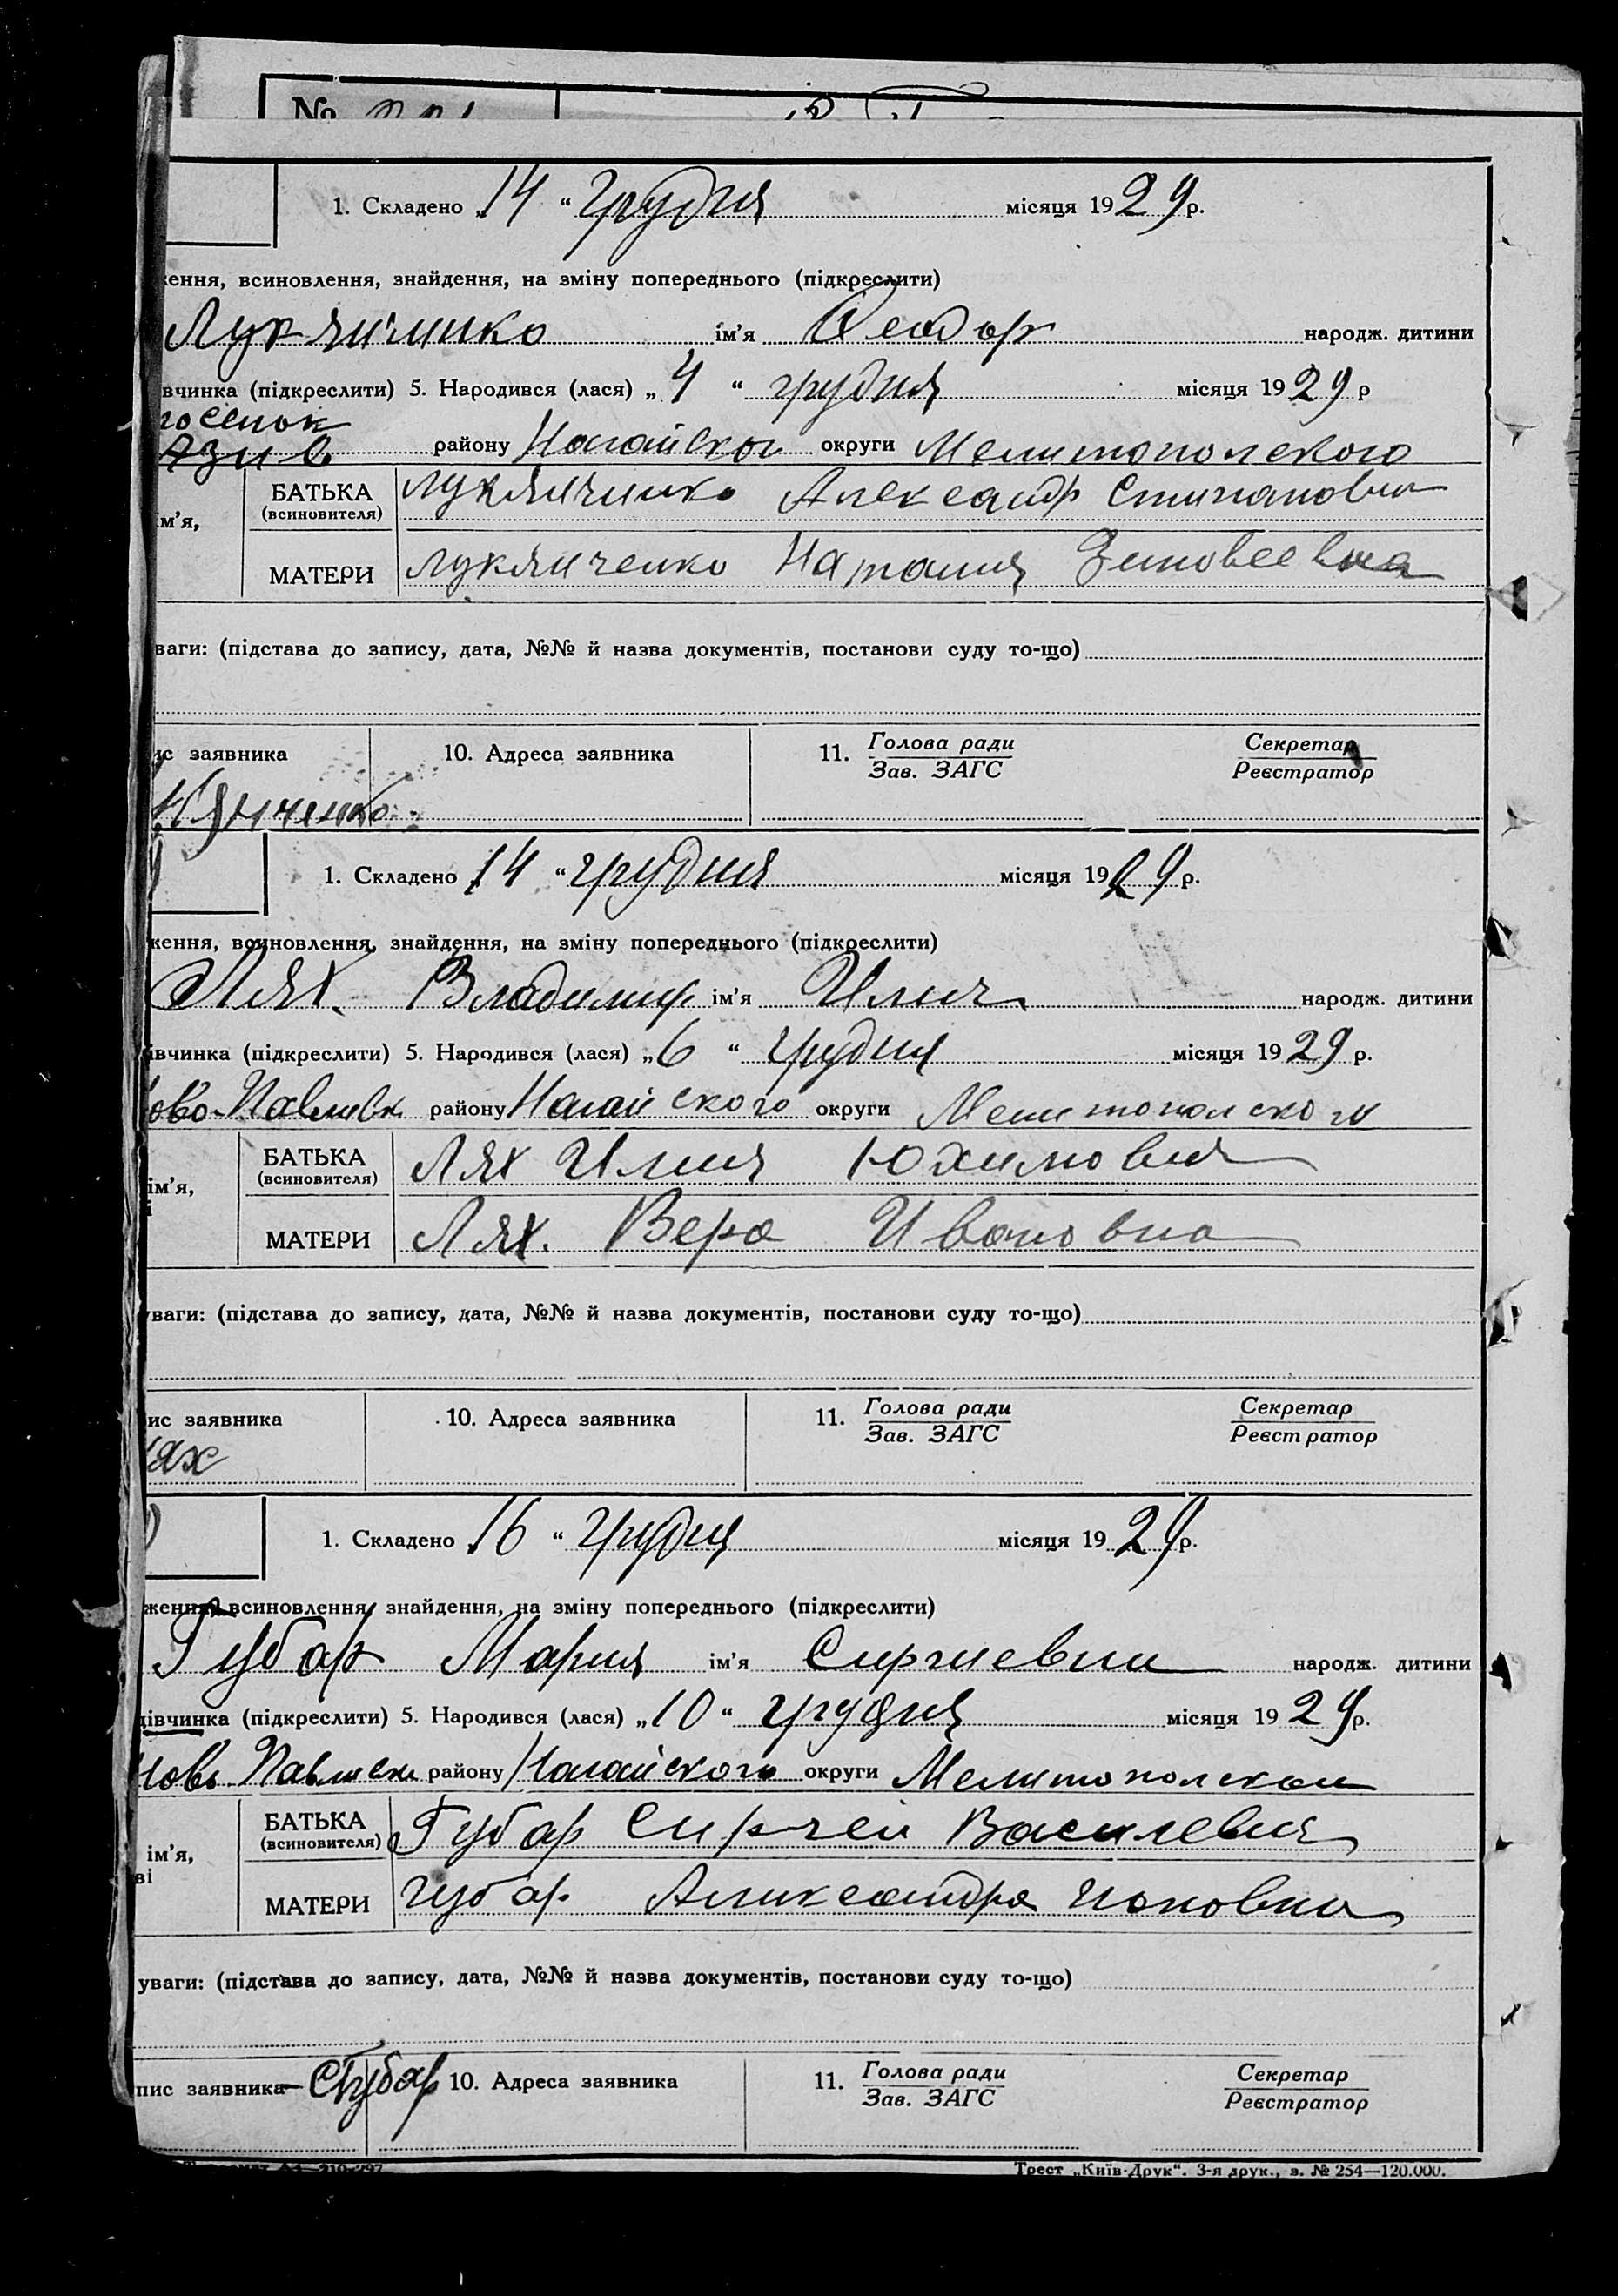 №
1. Складено „14 “ Грудня місяця 1929 р.
ження, всиновлення, знайдення, на зміну попереднього (підкреслити)
ім’я Федор народж. дитини
вчинка (підкреслити) 5. Народився (лася) „ 4 “ грудня місяця 1929 р
поселок
Азив району Нагайског округи Мелитополского
ім’я, БАТЬКА (всиновителя) Лукяниченко Александр Стипанович
МАТЕРИ Лукянченко Наталия Зиновеевна
ваги: (підстава до запису, дата, №№ й назва документів, постанови суду то-що)
ис заявника 10. Адреса заявника 11. Голова ради Секретар
Зав. ЗАГС Реєстратор
кянченко
1. Складено 14 “ грудня місяця 1929 р.
ження, всиновлення, знайдення, на зміну попереднього (підкреслити)
Лях. Владимир ім’я Илич народж. дитини
івчинка (підкреслити) 5. Народився (лася) „ 6 “ грудня місяця 1929 р.
ово-Павливк району Нагайского округи Мелитополского
ім’я, БАТЬКА (всиновителя) Лях Илия Юхимович
МАТЕРИ Лях. Вера Ивановна
уваги: (підстава до запису, дата, №№ й назва документів, постанови суду то-що)
ис заявника 10. Адреса заявника 11. Голова ради Секретар
Зав. ЗАГС Реєстратор
лях
1. Складено 16 “ Грудня місяця 1929 р.
ження, всиновлення, знайдення, на зміну попереднього (підкреслити)
Губар Мария ім’я Сиргиевни народж. дитини
дівчинка (підкреслити) 5. Народився (лася) „ 10 “ грудня місяця 1929 р.
Ново Павливки району Нагайского округи
ім’я, БАТЬКА (всиновителя) Губар Сиргей Василевич
ві
МАТЕРИ Губар Аликсандра
уваги: (підстава до запису, дата, №№ й назва документів, постанови суду то-що)
пис заявника – СГубар 10. Адреса заявника 11. Голова ради Секретар
Зав. ЗАГС Реєстратор
Трест „Київ-Друк“. 3-я друк., з. № 254—120.000.